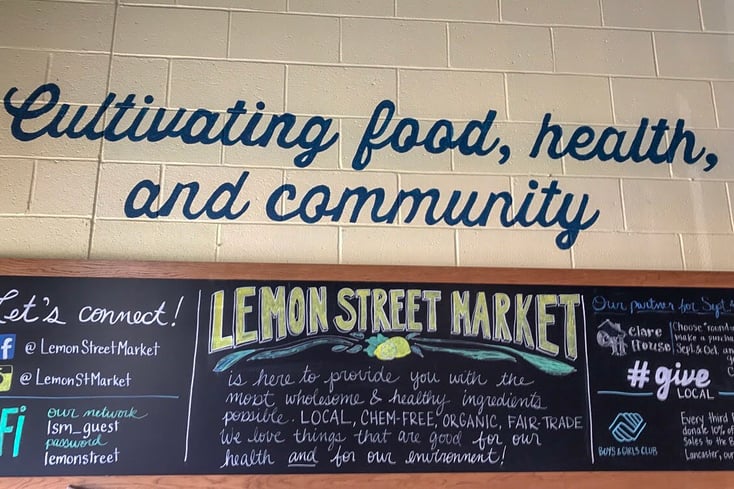 Cultivating food, health,
and community
Let's connect!
@ LemonStreetMarket
@ LemonStMarket
Fi
our network
lsm_guest
password
lemonstreet
LEMON STREET MARKET
is here to provide you with the
most wholesome & healthy ingredients
possible. LOCAL, CHEM-FREE, ORGANIC, FAIR-TRADE
We love things that are good for our
health and for our environment!
Our partner for Sept
clare
House
Choose "round
make a purcha
Sept. & Oct. an
#give
LOCAL
BOYS & GIRLS CLUB
Every third
donate 10% of
Sales to the B
Lancaster, our